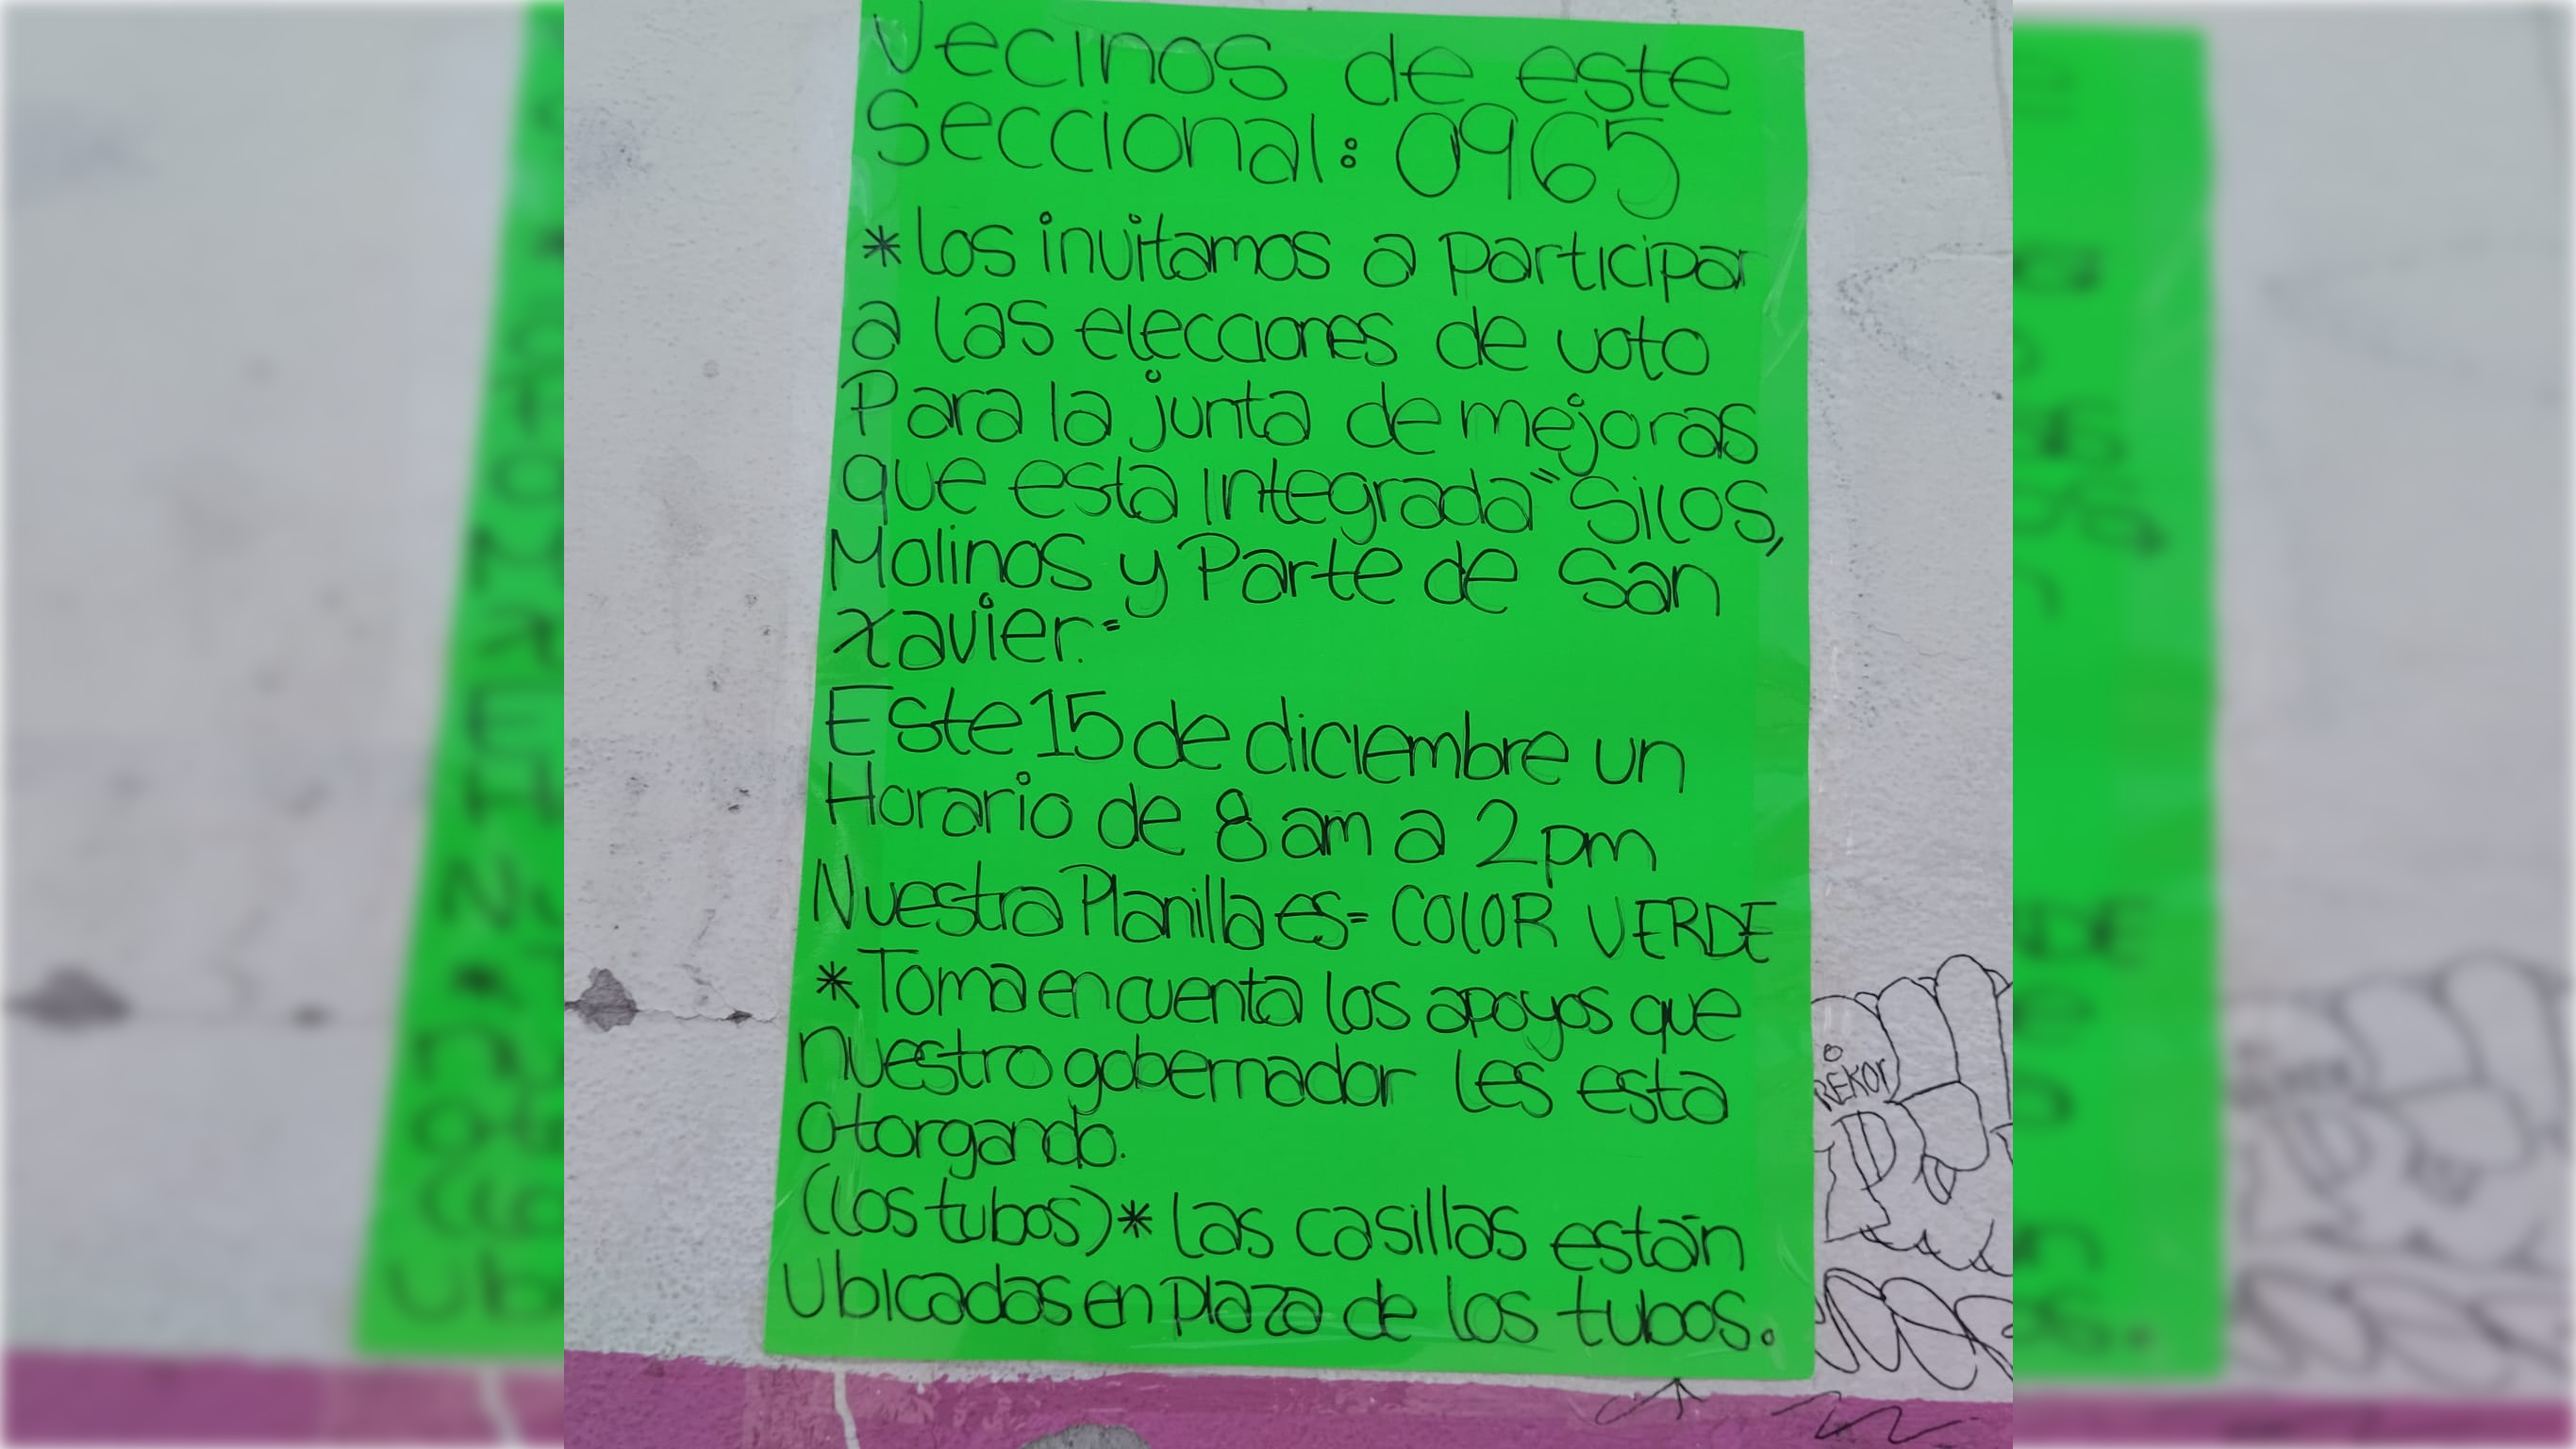 Vecinos de este
Seccional: 0965
* Los invitamos a participar
a las elecciones de voto
Para la junta de mejoras
que esta integrada" Silos,
Molinos y Parte de San
Xavier."
Este 15 de diciembre un
Horario de 8 am a 2 pm
Nuestra Planilla es= COLOR VERDE
* Toma en cuenta los apoyos que
nuestro gobernador les esta
otorgando.
(los tubos) * Las casillas están
Ubicadas en Plaza de los tubos.
REKOr